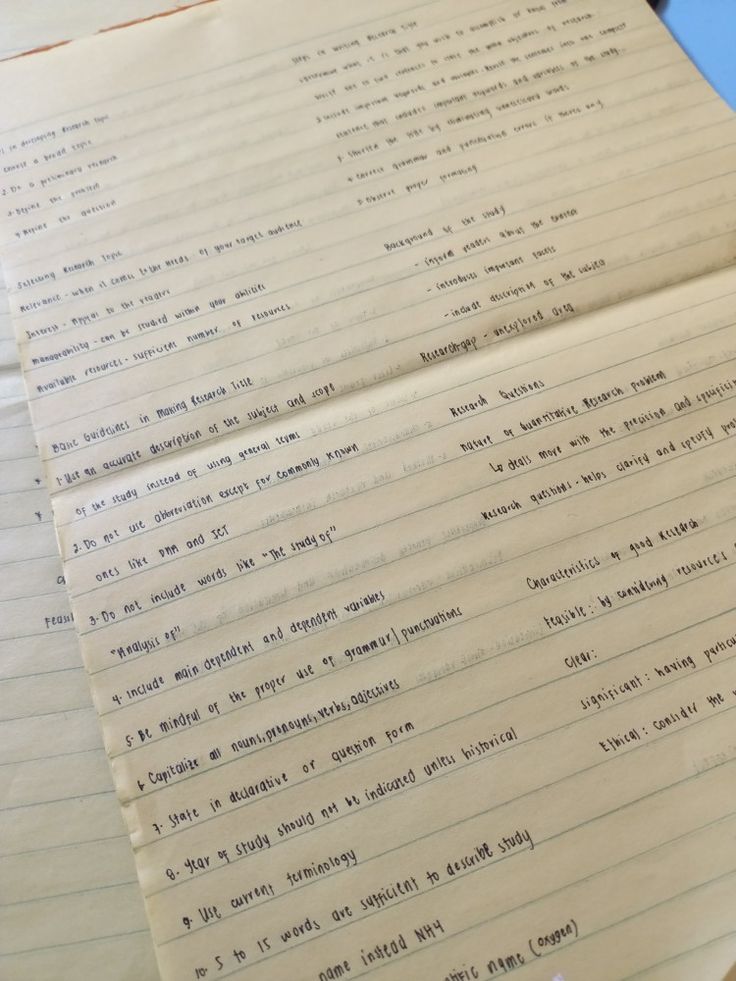 in developing Research topic
choose a broad topic
2. Do a preliminary research
3. Define the problem
4. Refine the question
Selecting Research Topic
Relevance - when it comes to the needs of your target audience
Interest - Appeal to the reader
Manageability - can be studied within your abilities
Available resources - sufficient number of resources
Basic Guidelines in Making Research Title
1. Use an accurate description of the subject and scope
of the study instead of using general terms
2. Do not use abbreviation except for commonly known
ones like DNA and ICT
3. Do not include words like "The study of"
"Analysis of"
4. Include main dependent and dependent variables
5. Be mindful of the proper use of grammar/punctuations
6. Capitalize all nouns, pronouns, verbs, adjectives
7. State in declarative or question form
8. Year of study should not be indicated unless historical
9. Use current terminology
10. 5 to 15 words are sufficient to describe study
name instead NH4
name (oxygen)
Steps in Writing Research Title
Determine what it is that you wish to accomplish or know
two sentences to state the main objectives of research.
3. Include important keywords and
sentence that includes important keywords and variables of the study.
Shorten the title by eliminating unnecessary words
Correct grammar and punctuation errors if there's any
Observe proper formatting
Background of the study
- inform readers about the context
- introduces important facets
- include description of the subject
Research gap - unexplored area
Research Questions
Nature of Quantitative Research problem
↳ deals more with the precision and
Research questions - helps clarify and specify
Characteristics of good Research
feasible: by considering resource's
Clear:
significant: having
Ethical: consider the